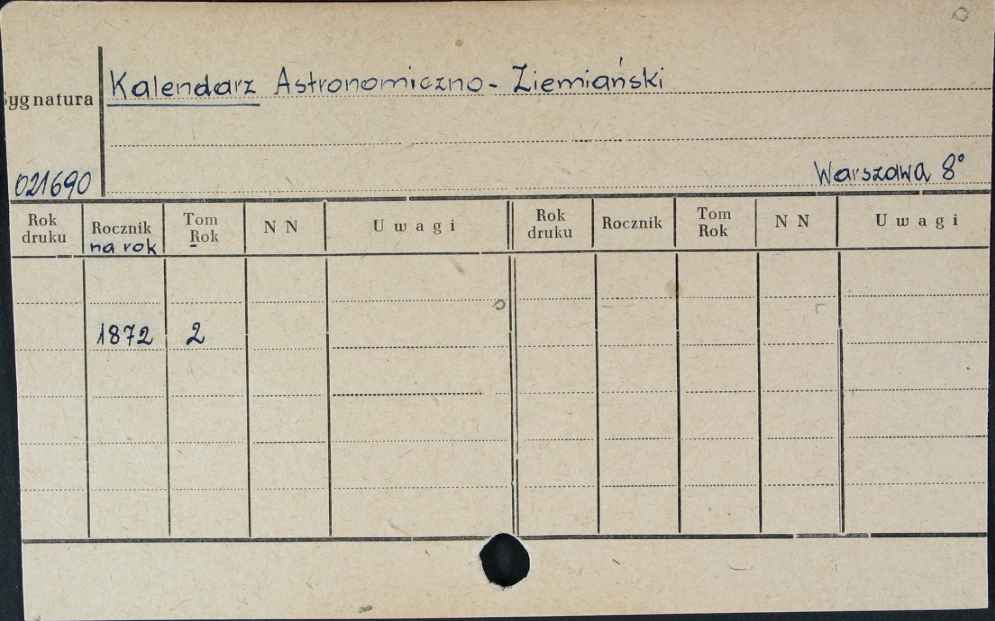 Kalendarz Astronomiczno-Ziemiański
Sygnatura
021690 Warszawa 8°
Rok druku Rocznik na rok Tom Rok N N Uwagi Rok druku Rocznik Tom Rok N N Uwagi
1872 2